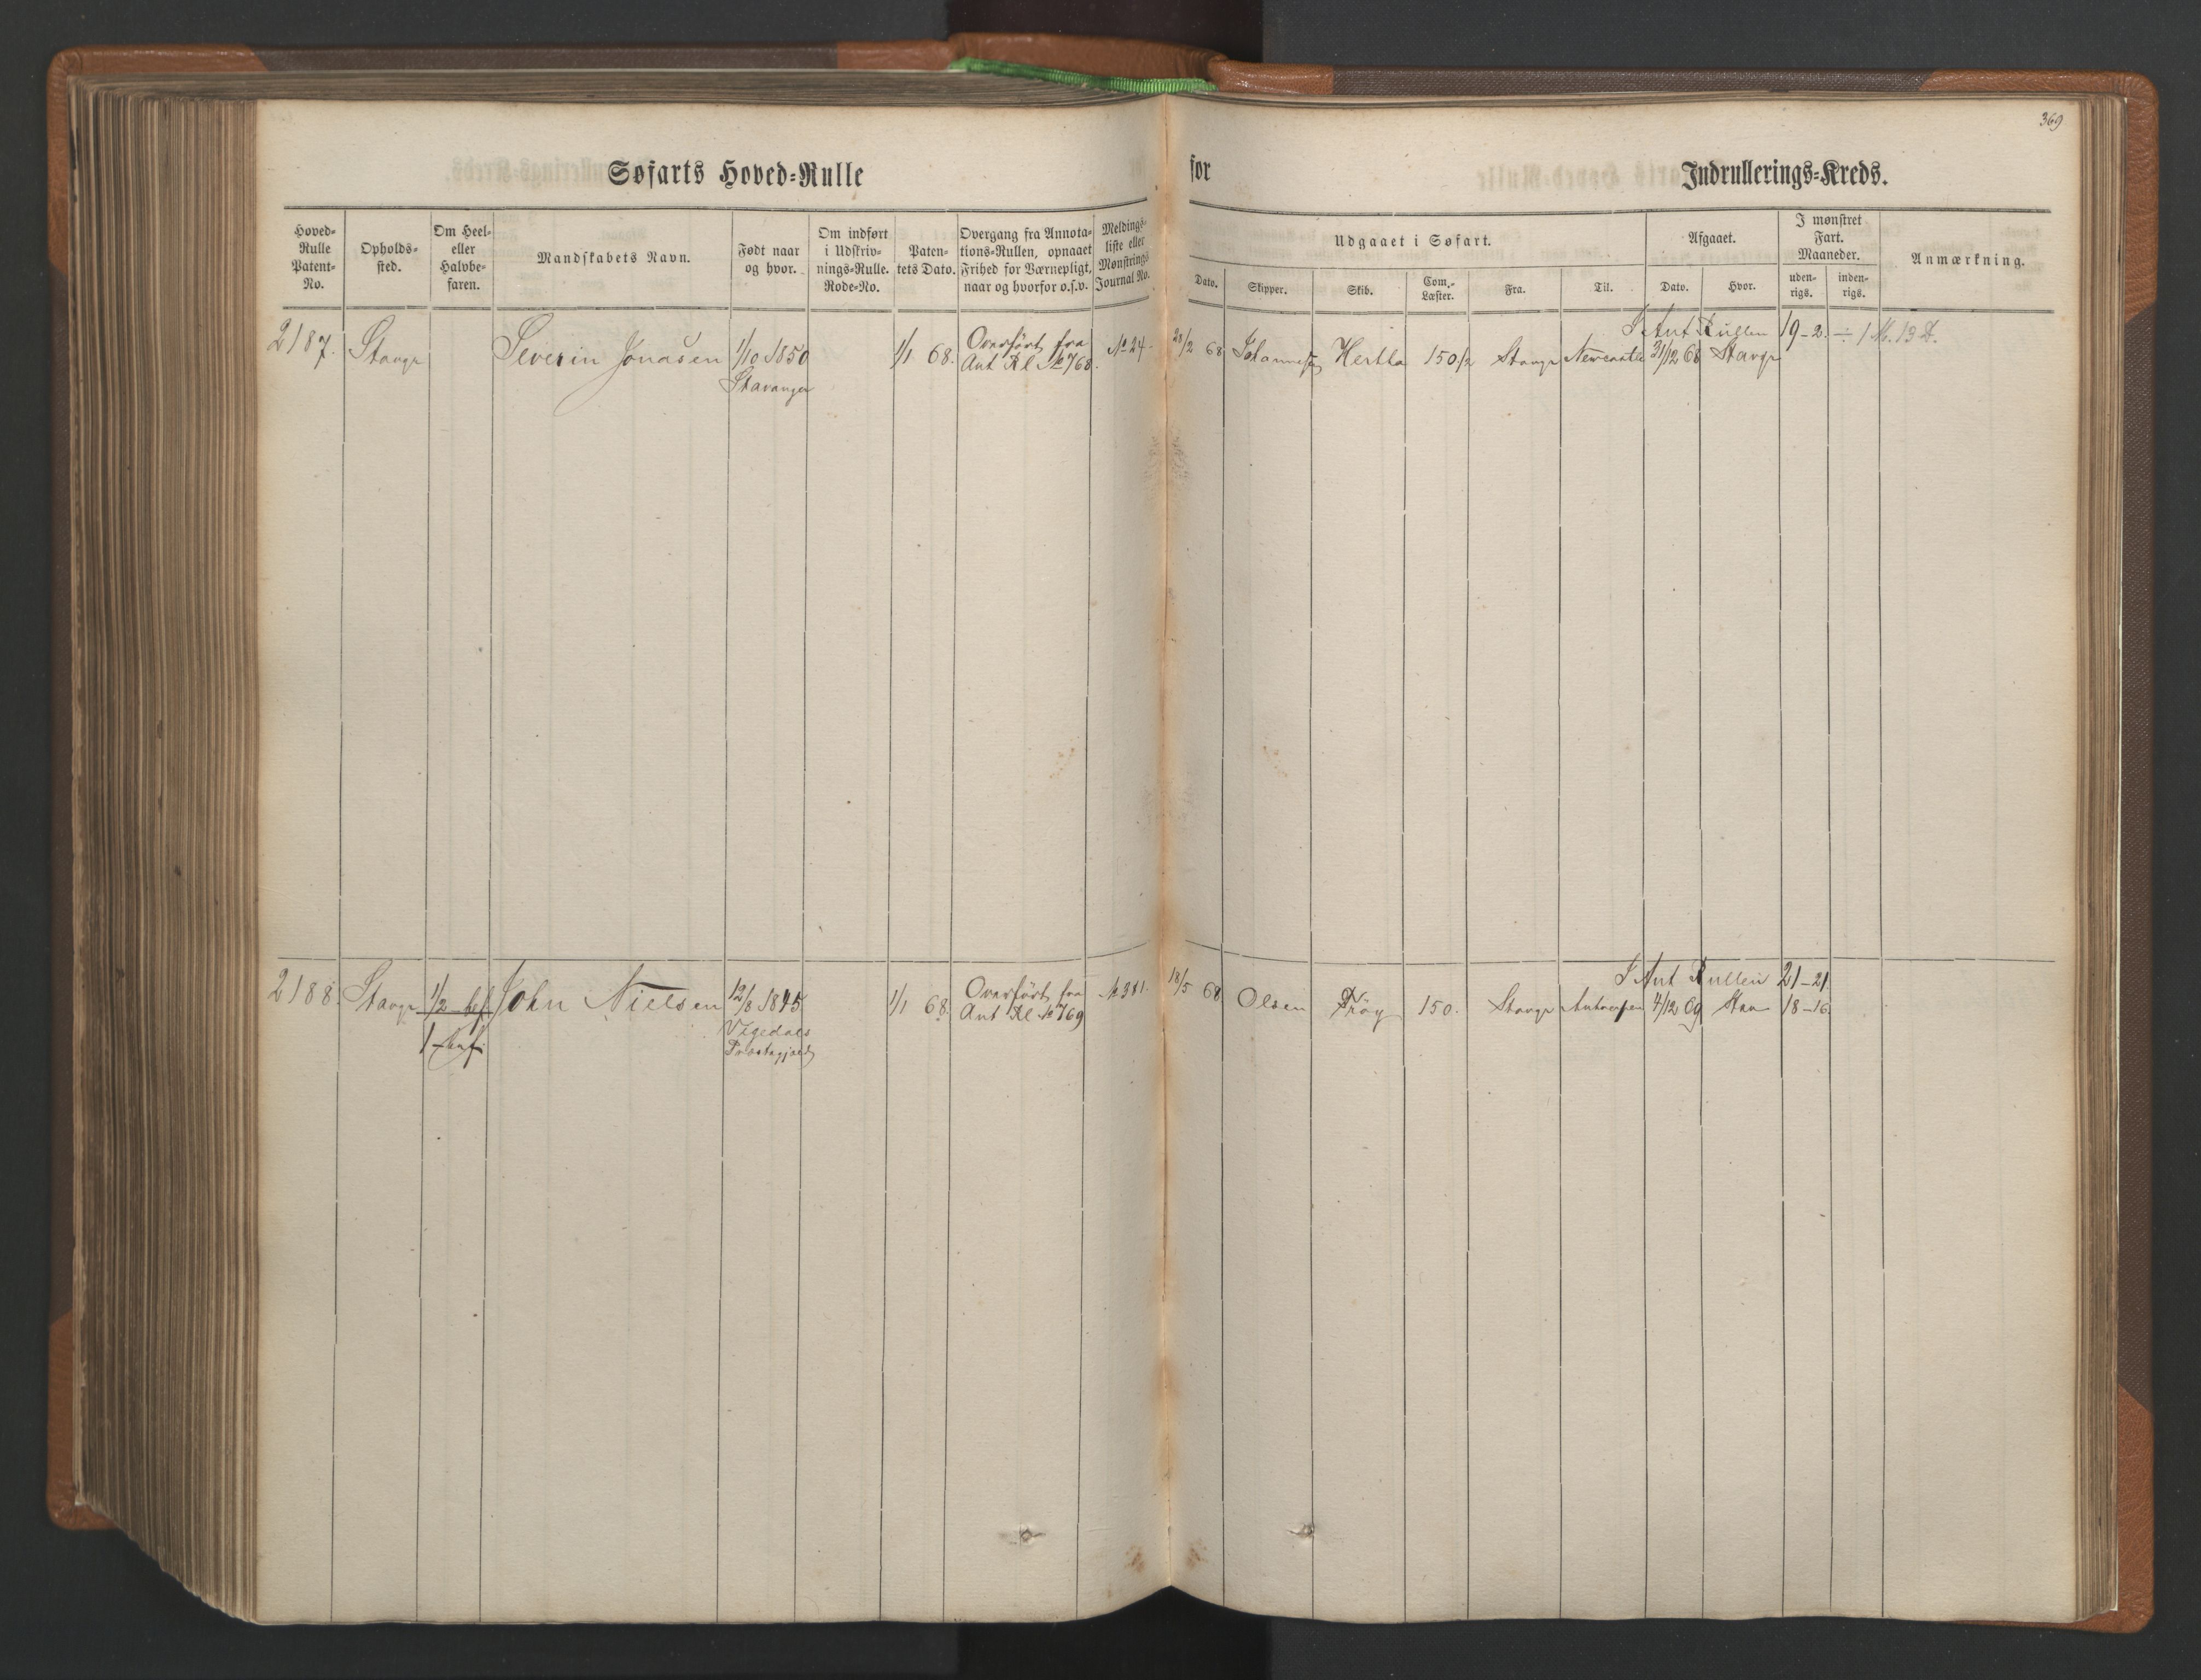 369
Søfarts Hoved-Rulle for Indrullerings-Kreds.
Hoved-Rulle Patent-No.
Opholds-sted.
Om Heel- eller Halvbe-faren.
Mandskabets Navn.
Født naar og hvor.
Om indført i Udskriv-nings-Rulle. Rode-No.
Paten-tets Dato.
Overgang fra Annota-tions-Rullen, opnaaet Frihed for Værnepligt, naar og hvorfor o.s.v.
Meldings-liste eller Mønstrings Journal No.
Udgaaet i Søfart.
Dato.
Skipper.
Skib.
Com.-Læster.
Fra.
Til.
Afgaaet.
Dato.
Hvor.
I mønstret Fart. Maaneder.
uden-rigs.
inden-rigs.
Anmærkning.
I Ant Rullen 19-2. ÷ 1 M. 13 D.
2187. Stavgr Severin Jonasen 1/10 1850 1/1 68. Overført fra № 24 28/2 68 Hertha 150 1/2 Stavgr Newcastle 31/12 68 Stavgr
Stavanger Ant Rl № 768.
I Ant Rullen 21-21
2188. Stavgr 1/2 bef John Nielsen 12/8 1845 1/1 68. Overført fra № 381 18/5 68 Olsen 150. Stavgr Antwerpen 4/12 69 Stav 18-16.
1 bef. Ant Rl № 769
Præstegjæld